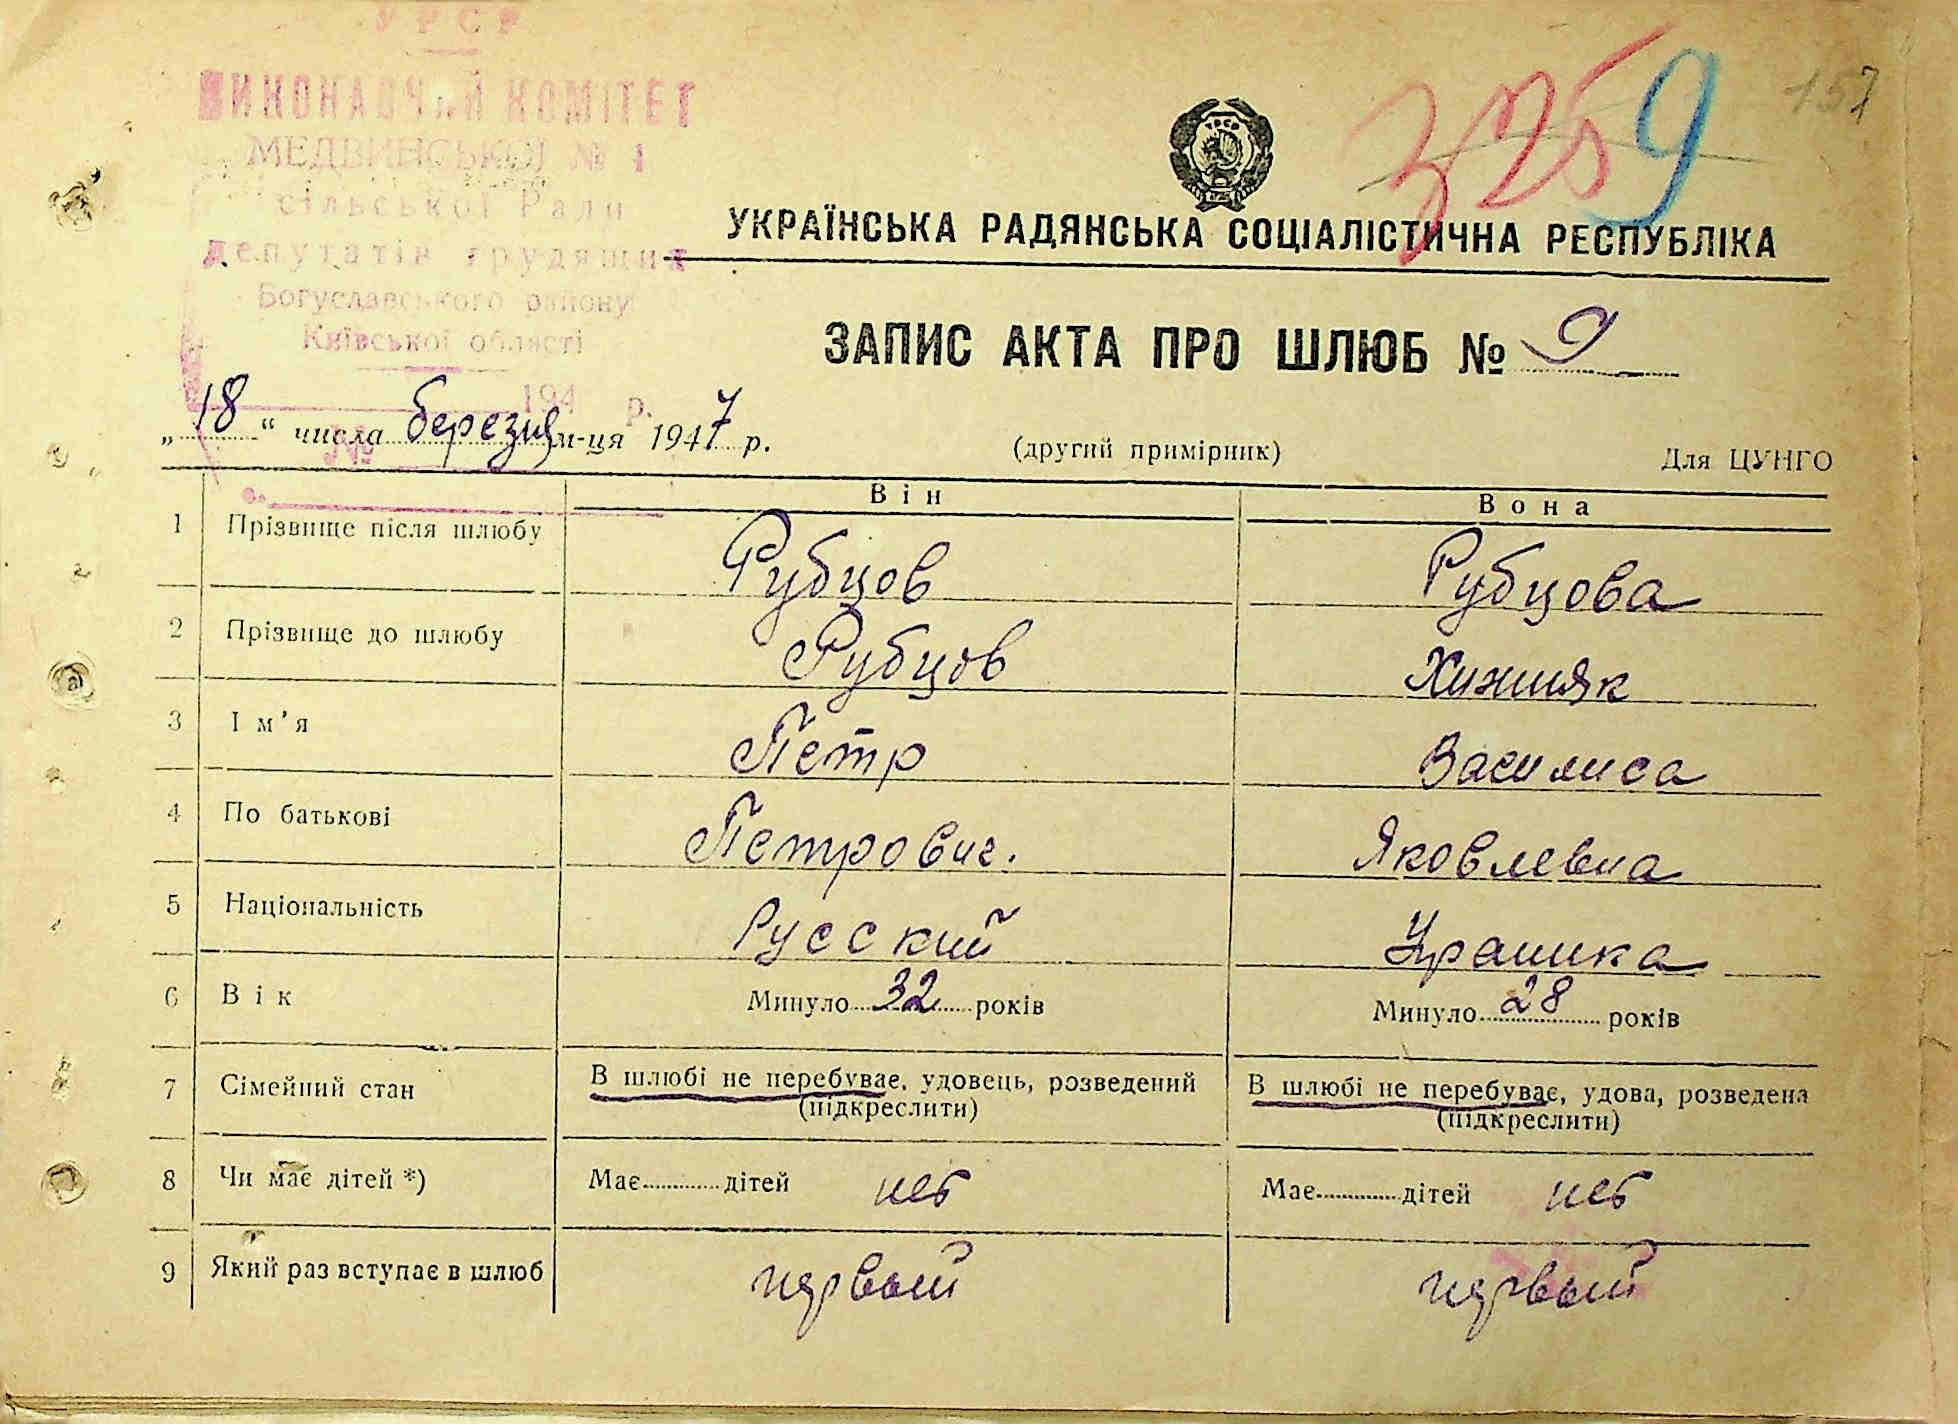 УРСР
ВИКОНАВЧИЙ КОМІТЕТ
МЕДВИНСЬКОЇ № 1
сільської Ради
депутатів трудящих
Богуславського району
Київської області
194 р.
№
3259
157
УРСР
УКРАЇНСЬКА РАДЯНСЬКА СОЦІАЛІСТИЧНА РЕСПУБЛІКА
ЗАПИС АКТА ПРО ШЛЮБ № 9
„18“ числа березня м-ця 1947 р.
(другий примірник)
Для ЦУНГО
Він
Вона
1 Прізвище після шлюбу Рубцов Рубцова
2 Прізвище до шлюбу Рубцов Хижняк
3 Ім'я Петр Василиса
4 По батькові Петрович. Яковлевна
5 Національність Русский Украинка
6 Вік Минуло 32 років Минуло 28 років
7 Сімейний стан В шлюбі не перебуває, удовець, розведений В шлюбі не перебуває, удова, розведена
(підкреслити) (підкреслити)
8 Чи має дітей *) Має дітей нет Має дітей нет
9 Який раз вступає в шлюб первый первый